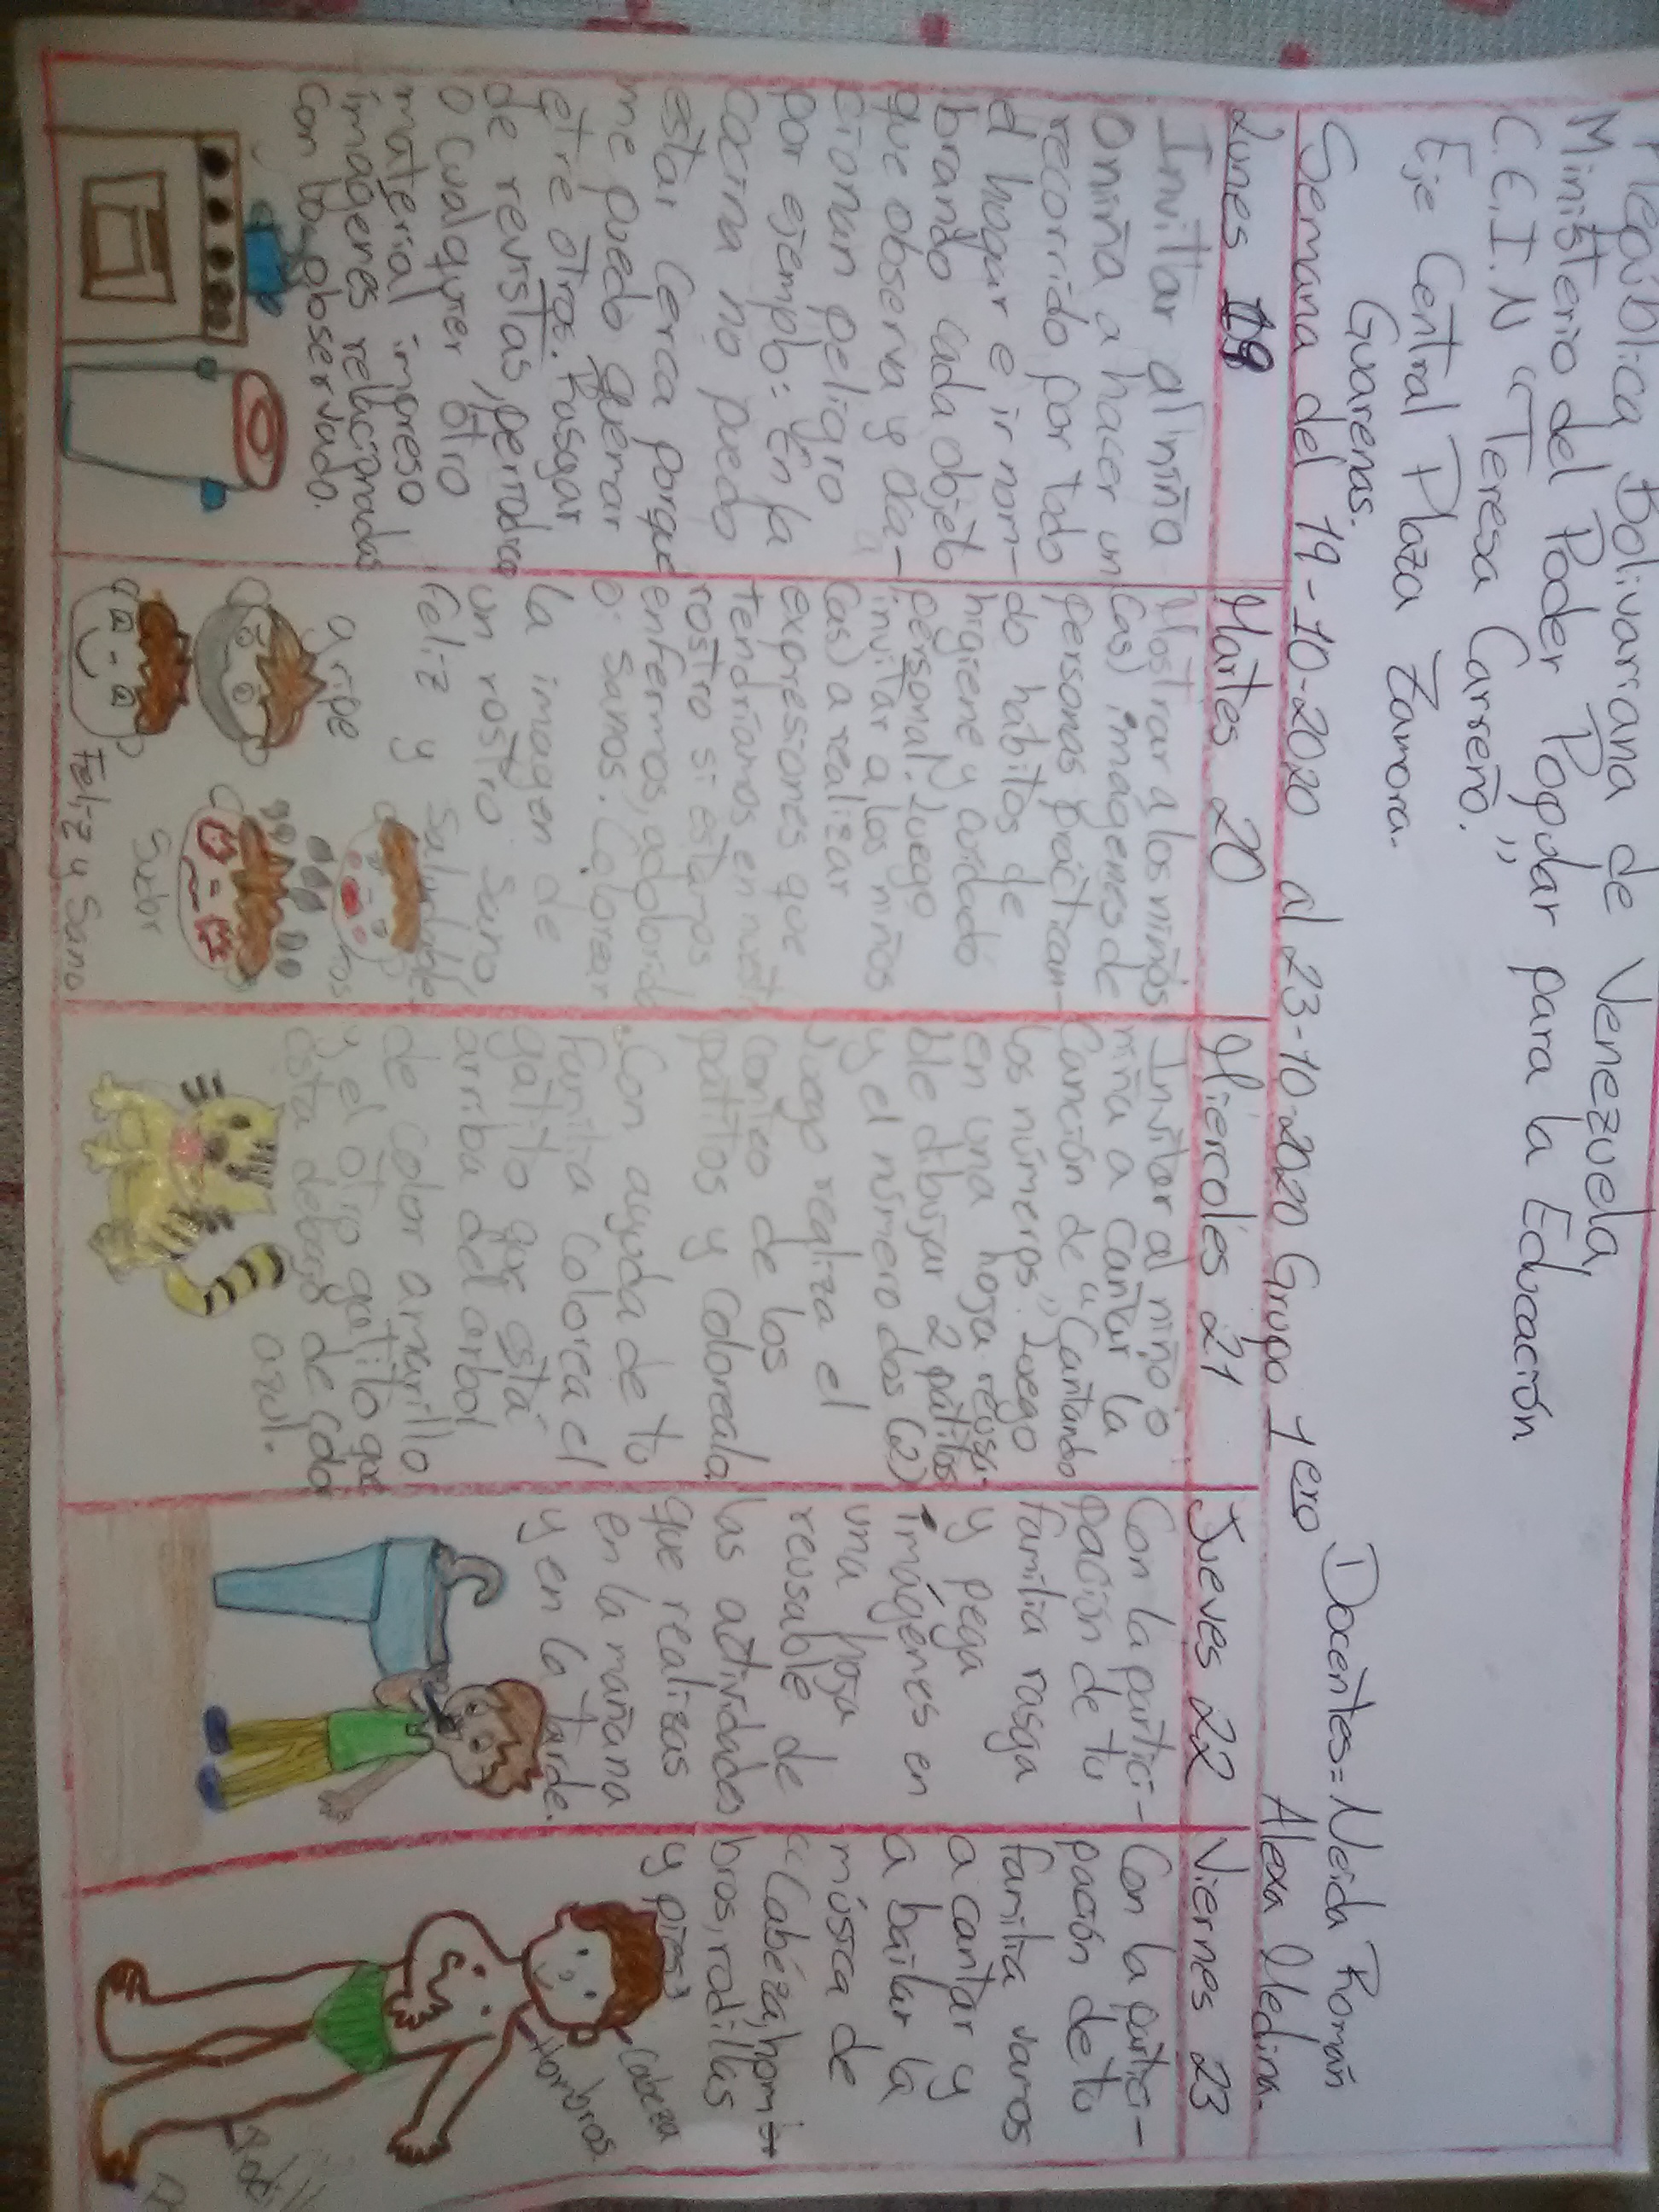 República Bolivarriana de Venezuela,
Ministerio del Poder Popular para la Educación
C.E.I.N "Teresa Carreño,"
Eje Central Plaza Zamora.
Guarenas.
Docentes= Neida Román
Alexa Medina.
Semana del 19-10-2020 al 23-10-2020 Grupo 1ero
Lunes 19
Invittar al niño
O niña a hacer un
recorrido por todo
el hogar e ir nom-
brando cada objeto
que observa y oca-
cionan peligro
por ejemplo: En la
Cocina no puedo
estar Cerca porque
me puedo quemar
etre otros. Rasgar
de revistas, perrodico
O cualquier otro
material impreso
imageres relacipradas
Con lo observado.
Martes 20
Mostrar a los niños
(as) imagenes de
personas practican-
do habitos de
higiene y cuidado
personal. Luego
invitar a los niños
(as) a realizar
expresiones que
tendríamos en nuest
rostro si estamos
enfermos, adolorid
o: sanos. Colorear
la imagen de
un rostro sano
feliz y saludable.
gripe
Sudor
Feliz y Sano
Miercoles 21
Invitar al niño o
niña a cantar la
Canción de "Cantando
los números." Luego
en una hoja reusa-
ble dibujar 2 patitos
y el número dos (2)
luego realiza el
Conteo de los
patitos y colorealo
.Con ayuda de tu
familia colorea el
gatito que está
arriba del arbol
de color amarillo
y el otro gatito que
esta debajo de color
azul.
Jueves 22
Con la partici-
pación de tu
familia rasga
y pega
imágenes en
una hoja
reusable de
las actividades
que realizas
en la mañana
y en la tarde.
Viernes 23
Con la partici-
pación de tu
familia vamos
a cantar y
a bailar la
música de
"Cabéza, hom
bros, rodillas
y pies"
Cabeza
Hombros.